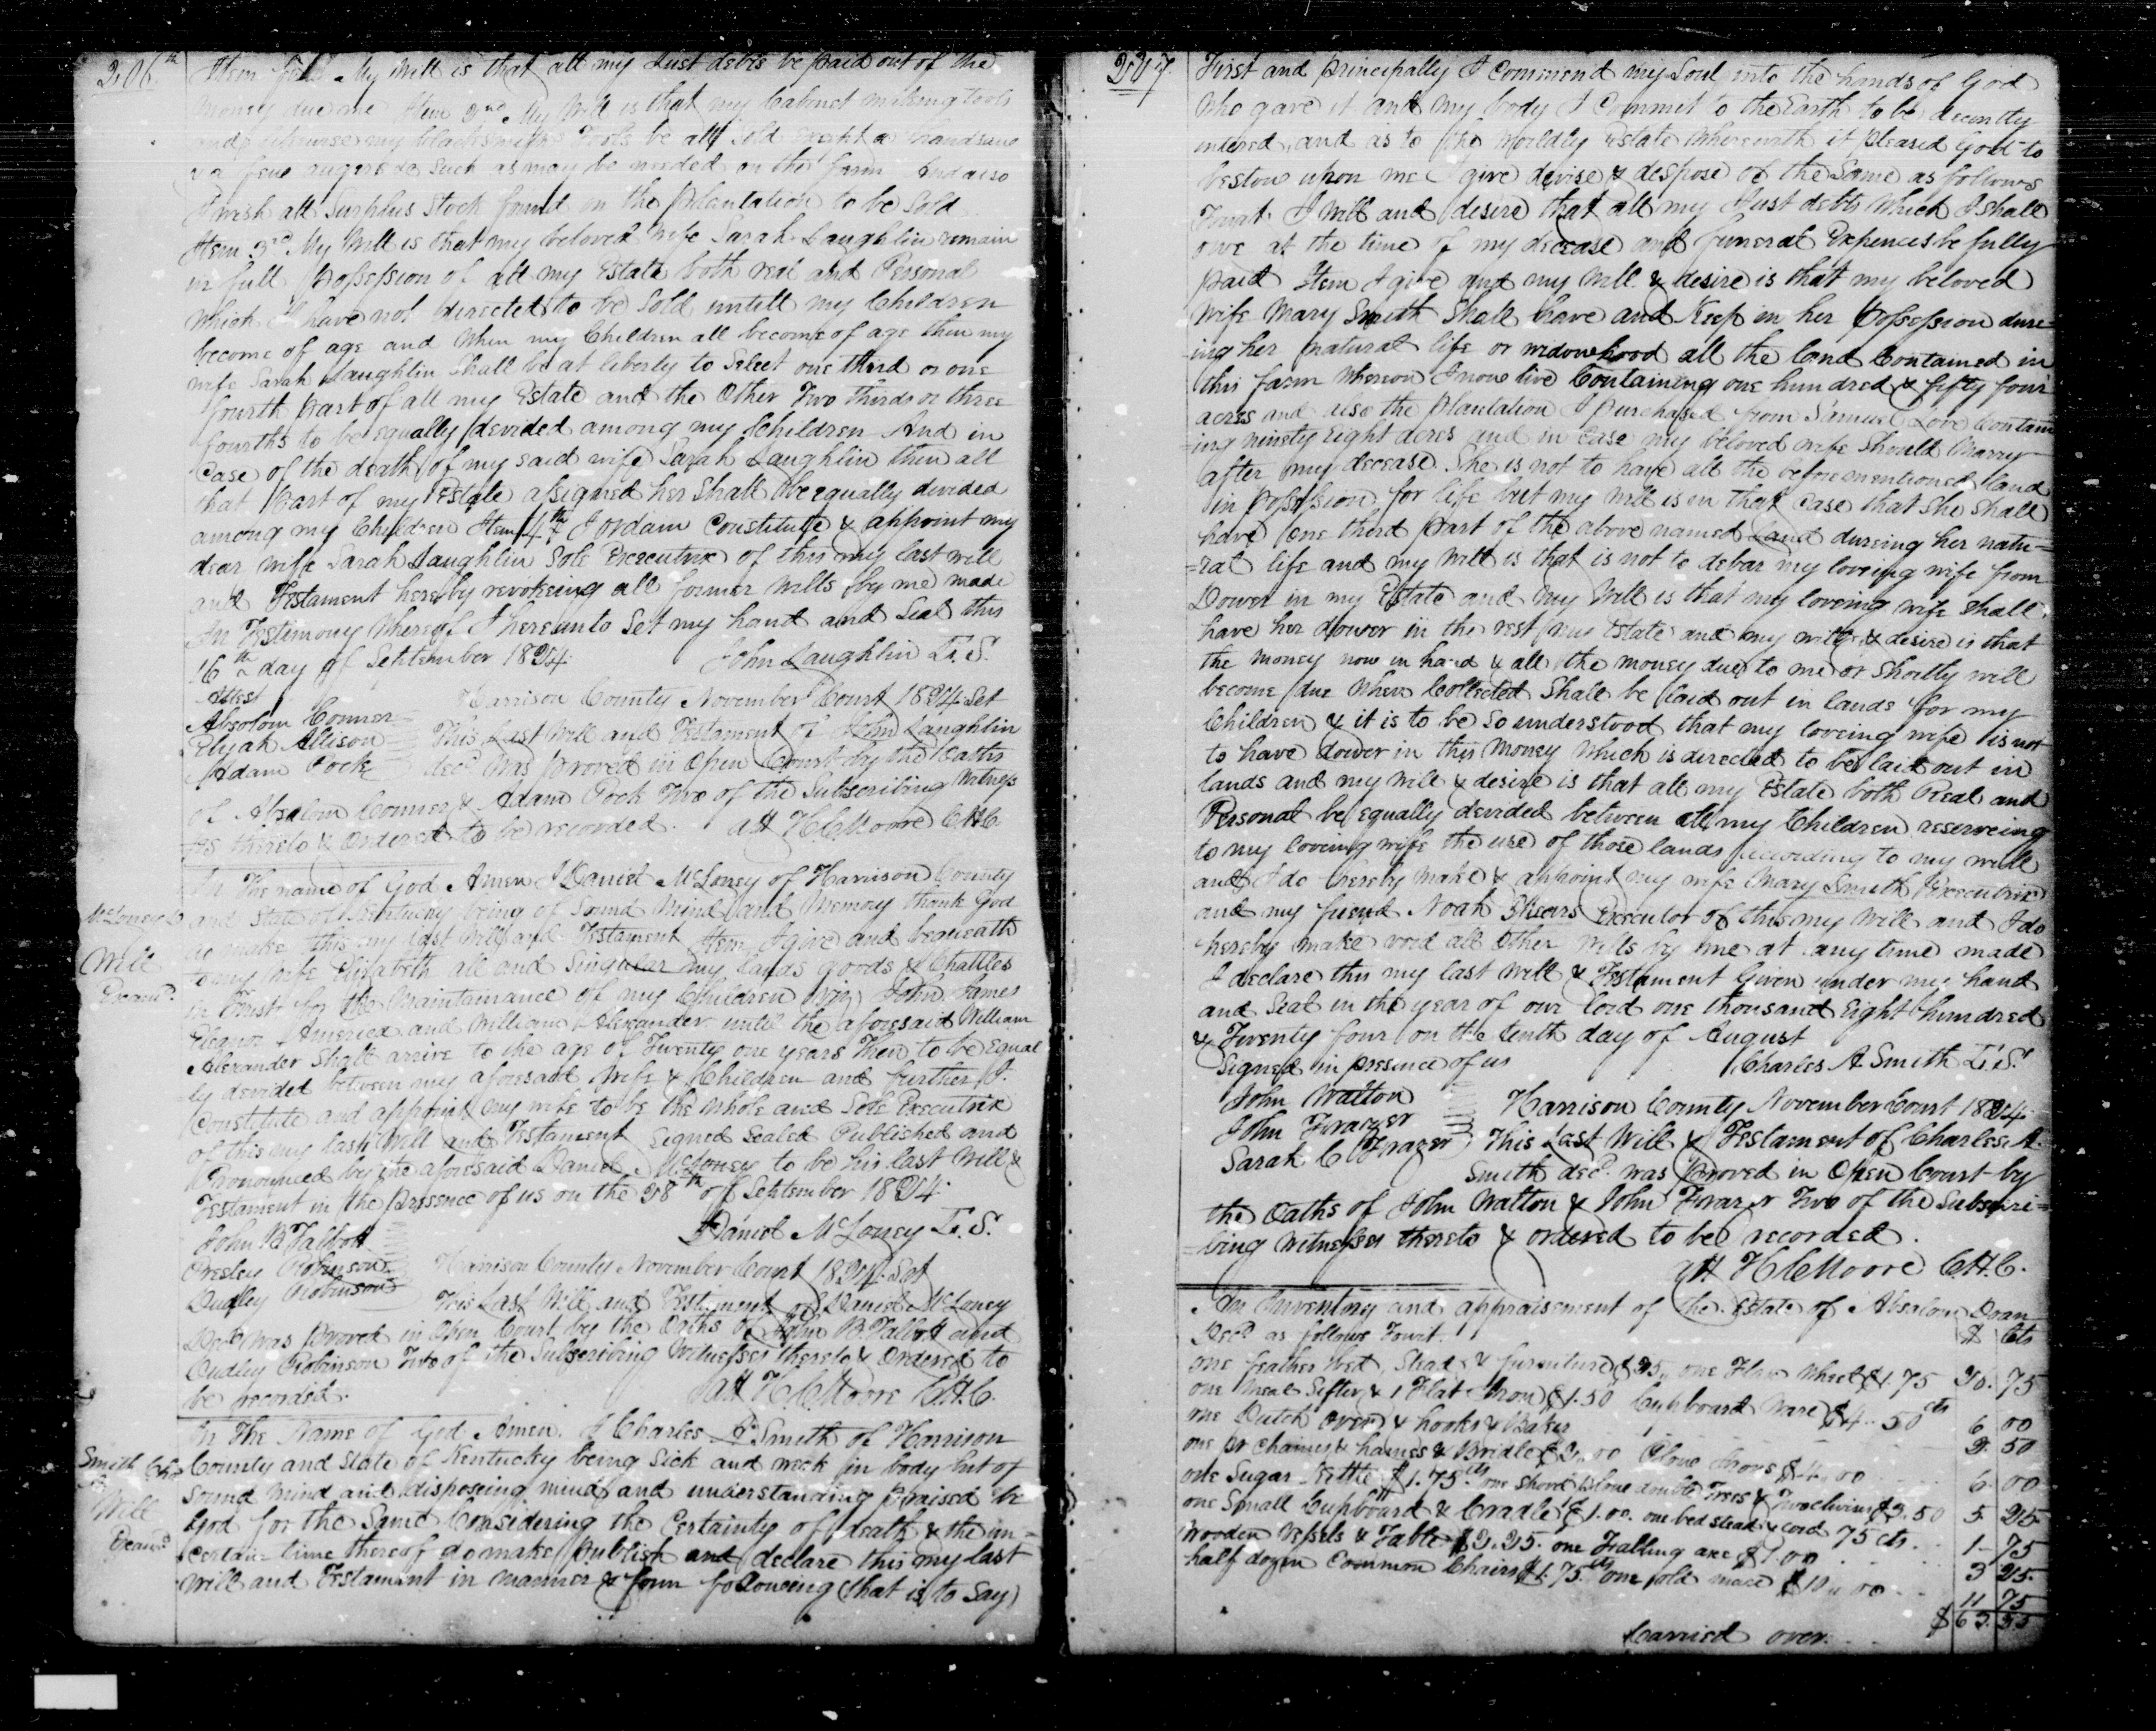 206th
Item first My Will is that all my Just debts be paid out of the
money due me Item 2nd My Will is that my Cabinet making tools
and likewise my blacksmiths Tools be all sold except a handsaw
& a few augers & such as may be needed on the farm And also
I wish all Surplus Stock found on the plantation to be Sold
Item 3rd My Will is that my beloved wife Sarah Laughlin remain
in full possession of all my Estate both real and Personal
which I have not directed to be Sold untill my Children
become of age and When my Children all become of age then my
wife Sarah Laughlin Shall be at liberty to Select one third or one
fourth part of all my Estate and the Other Two thirds or three
fourths to be equally devided among my Children And in
Case of the death of my said wife Sarah Laughlin then all
that part of my Estate assigned her Shall be equally devided
among my Children Item 4th I ordain Constitute & appoint my
dear wife Sarah Laughlin Sole Executrix of this my last will
and Testament hereby revokeing all former Wills by me made
In Testimony Whereof I hereunto Set my hand and Seal this
16th day of September 1824. John Laughlin L.S.
Attest
Absolom Conner
Elijah Allison
Adam Pock
Harrison County November Court 1824 Set
This Last Will and Testament of John Laughlin
decd was proved in Open Court by the Oaths
of Absalom Conner & Adam Pock Two of the Subscribing Witness
=es thereto & Ordered to be recorded. att H.C. Moore C.H.C.
McLoney D
Will
Examd.
In The name of God Amen I Daniel McLoney of Harrison County
and State of Kentucky being of Sound Mind and Memory thank God
do make this my last Will and Testament Item I give and bequeath
to my wife Elizabeth all and Singular my lands goods & Chattles
in trust for the Maintainance of my Children viz John James
Eleanor Americd and William Alexander until the aforesaid William
Alexander Shall arrive to the age of Twenty one years Then to be Equal
ly devided between my aforesaid Wife & Children and further I.
Constitute and appoint my wife to be the whole and Sole Executrix
of this my last Will and Testament Signed Sealed Published and
Pronounced by the aforesaid Daniel McLoney to be his last Will &
Testament in the presence of us on the 28th of September 1824.
Daniel McLoney L.S.
John B Talbott
Presley Robinson
Dudley Robinson
Harrison County November Court 1824. Set
This Last Will and Testament of Daniel McLoney
Decd was proved in Open Court by the Oaths of John B. Talbott and
Dudley Robinson Two of the Subscribing Witnesses thereto & Ordered to
be recorded. att H.C. Moore C.H.C.
Smith Chs
A
Will
Examd
In The Name of God Amen. I Charles A Smith of Harrison
County and State of Kentucky being Sick and weak in body but of
Sound mind and disposeing mind and understanding Praised be
God for the Same Considering the Certainty of death & the un=
certain time thereof do make Publish and declare this my last
will and Testament in manner & form following (that is to Say)
207.
First and principally I Commend my Soul into the hands of God
Who gave it and my body I Commit to the Earth to be decently
intered, and as to the Worldly Estate Wherewith it pleased God to
bestow upon me I give devise & despose of the Same as follows
Towit. I Will and desire that all my Just debts Which I shall
owe at the time of my decease and funeral Expences be fully
paid Item I give and my Will & desire is that my beloved
Wife Mary Smith Shall have and Keep in her Possession dure=
=ing her natural life or widowhood all the land Contained in
this farm Whereon I now live Containing one hundred & fifty four
acres and also the plantation I purchased from Samuel Love Contain
=ing ninety Eight acres and in case my beloved wife Should Marry
after my decease She is not to have all the before mentioned land
in possession for life but my Will is in that Case that She Shall
have one third part of the above named Land dureing her natu=
=ral life and my Will is that is not to debar my loveing wife from
Dower in my Estate and My Will is that my loveing wife Shall
have her dower in the rest my Estate and my will & desire is that
the money now in hand & all the money due to me or Shortly will
become due when Collected Shall be laid out in lands for my
Children & it is to be so understood that my loveing wife is not
to have dower in this Money Which is directed to be laid out in
lands and my will & desire is that all my Estate both Real and
Personal be equally devided between all my Children reserveing
to my loveing wife the use of those lands according to my will
and I do hereby Make & appoint my wife Mary Smith Executrix
and my friend Noah Executor of this my Will and I do
hereby make void all Other Wills by me at any time made
I declare this my last Will & Testament Given under my hand
and Seal in the year of our lord one thousand Eight hundred
& Twenty four on the tenth day of August
Signed in presence of us Charles A Smith L.S.
John Walton
John Frazer
Sarah C Frazer
Harrison County November Court 1824.
This Last Will & Testament of Charles A.
Smith decd. was Proved in Open Court by
the Oaths of John Walton & John Frazer Two of the Subscri=
=bing Witnesses thereto & ordered to be recorded.
att H.C. Moore C.H.C.
An Inventory and appraisement of the Estate of Absalom Doan
Decd. as follows Towit. $ Cts
one feather bed, Stead & furniture $25, one Flax Wheel $1.75 26. 75
one Meal Sifter & 1 Flat Iron $1.50 Cupboard Ware $4.50 cts 6 00
one Dutch oven & hooks & Baker 2. 50
one pr Chains & hames & Bridle $2.00 Plow Irons $4.00 6. 00
one Sugar Kettle $1.75 cts one Shovel Plow double Trees & Two clivins $3.50 5. 25
one Small Cupboard & Cradle $1.00. one bed stead & cord 75 cts. 1 75
Wooden Vessels & Table $2.25. one Falling axe $1.00 3 25
half dozen Common Chairs $1.75 cts one old mare $10.00 11 75
$63.25
Carried over.